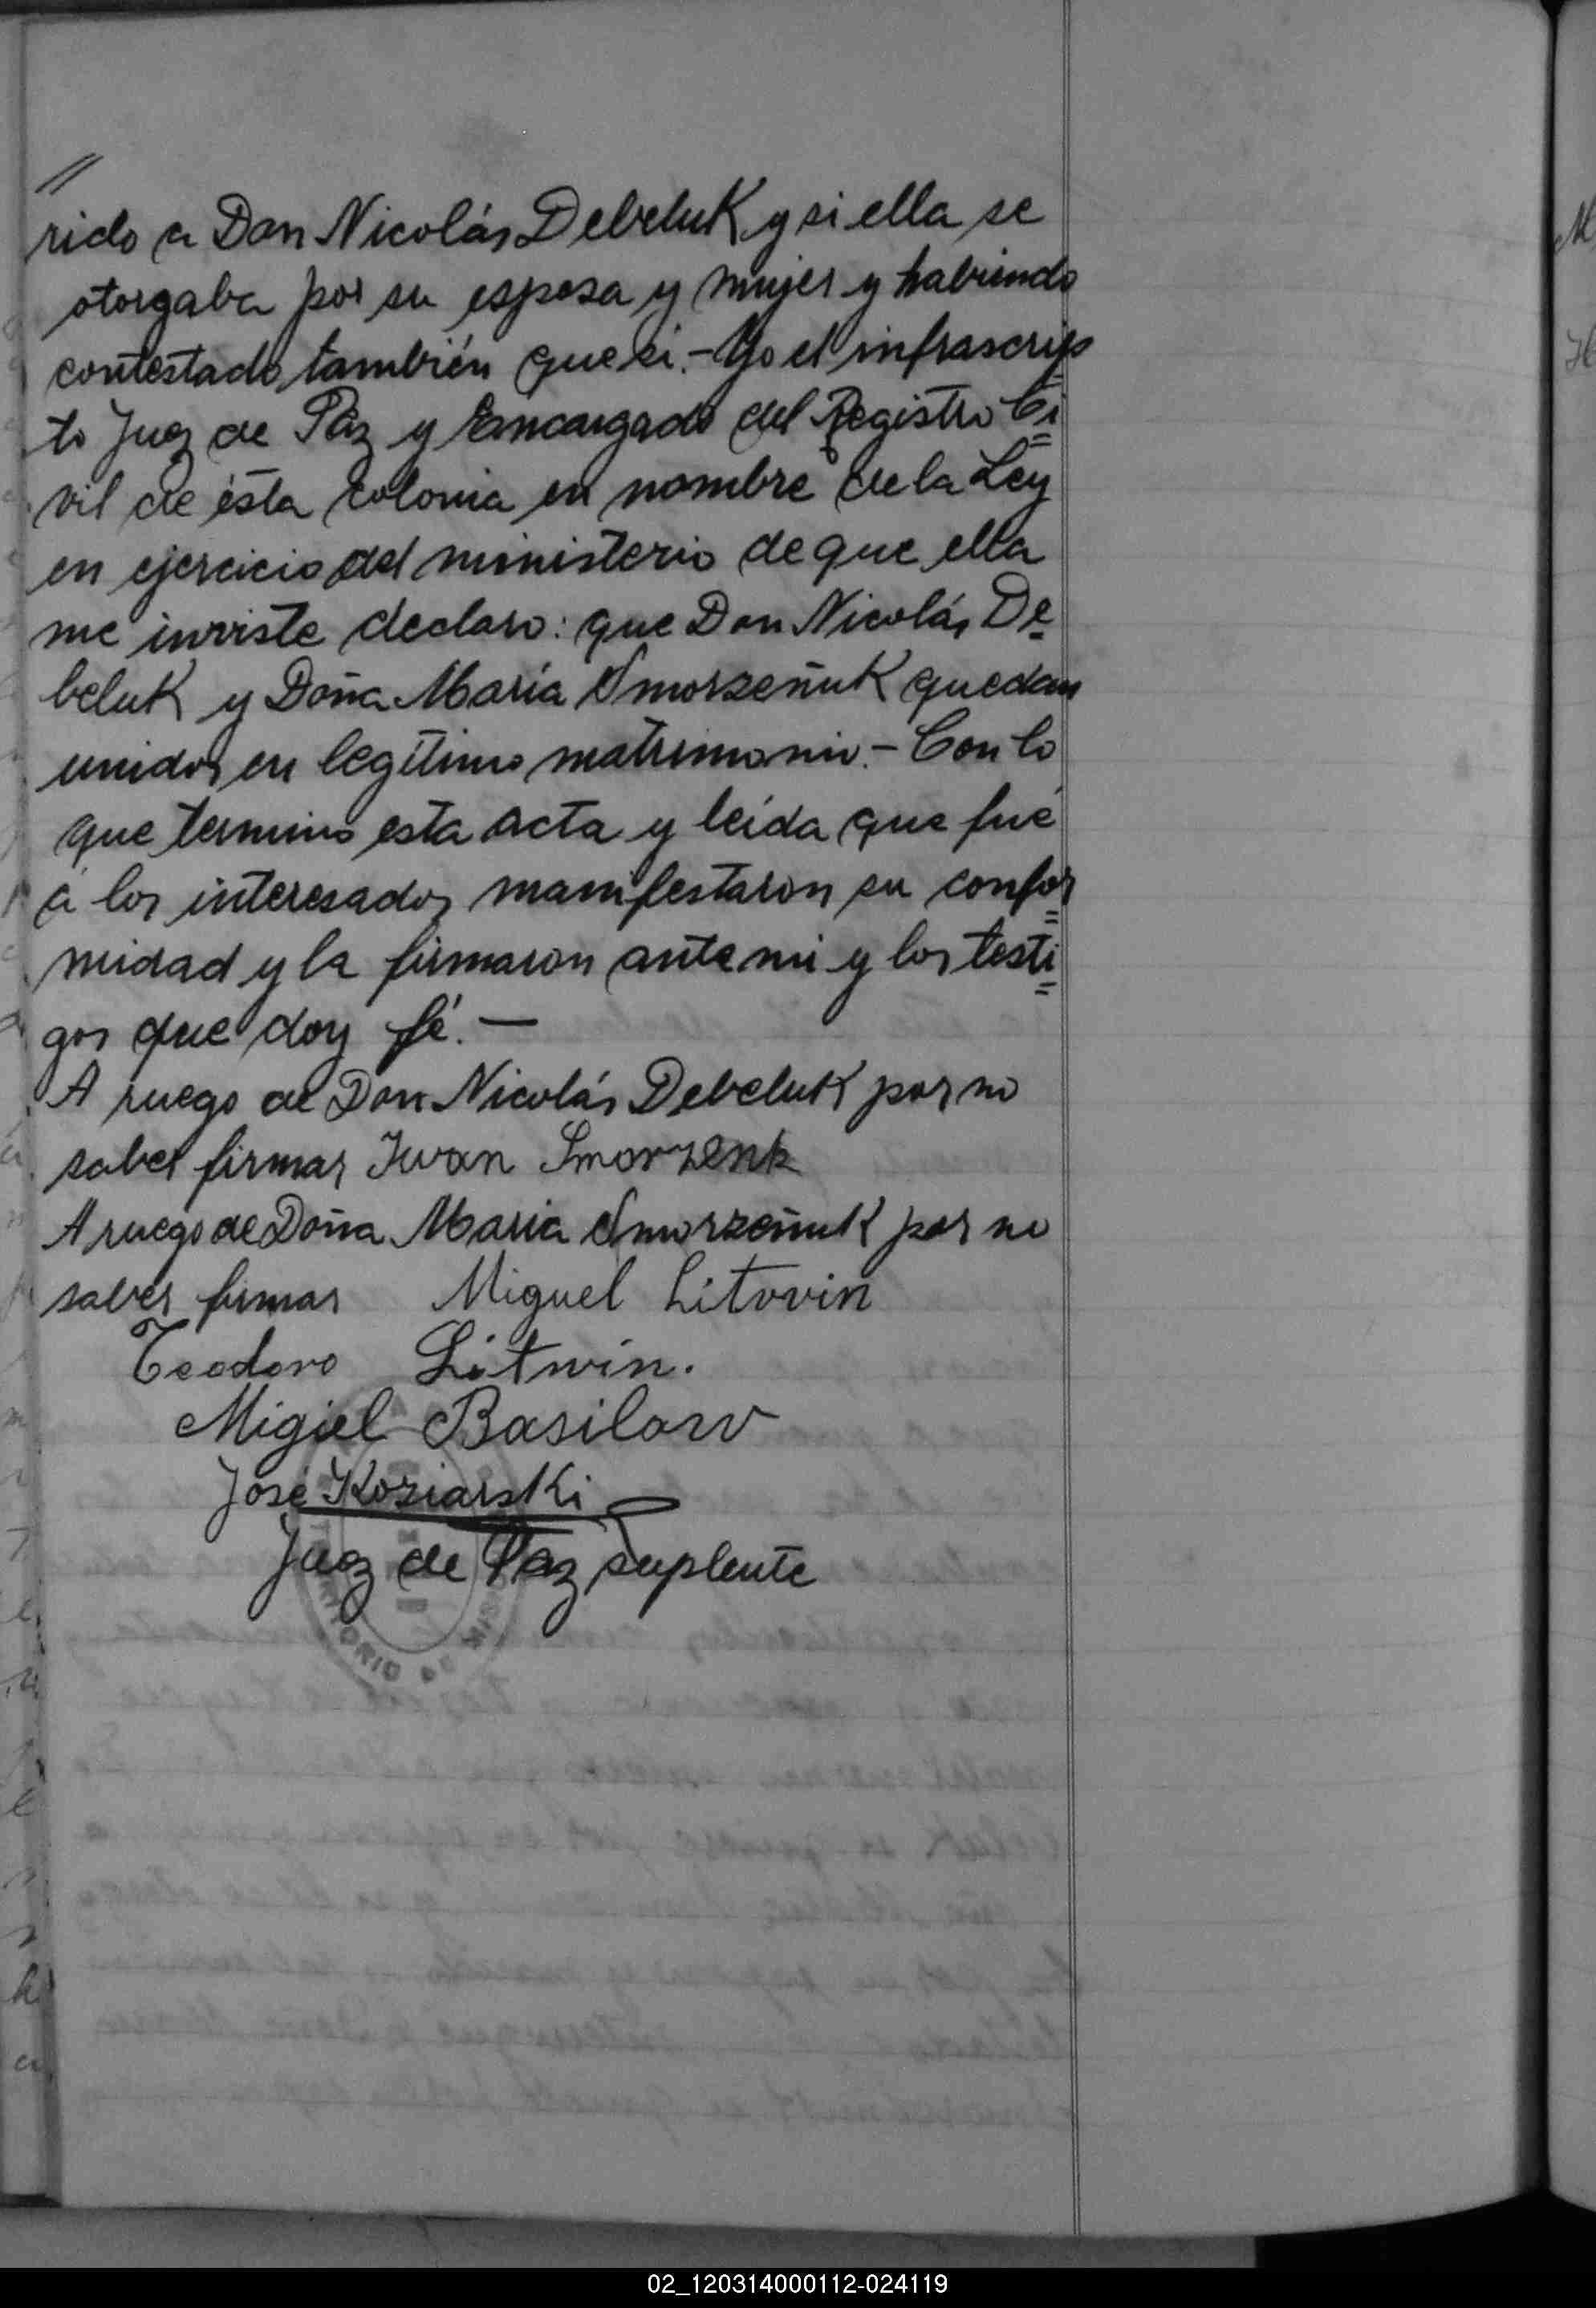 //
rido a Don Nicolás Debeluk y si ella se
otorgaba por su esposa y mujer y habiendo
contestado también que si.- Yo el infrascrip
to Juez de Paz y Encargado del Registro Ci
vil de ésta colonia en nombre de la Ley
en ejercicio del ministerio de que ella
me inviste declaro: que Don Nicolás De
beluk y Doña María Smorzeñuk quedan
unidos en legítimo matrimonio.- Con lo
que termino esta acta y leída que fué
á los interesados manifestaron su confor
midad y la firmaron ante mi y los testi
gos que doy fé.—
A ruego de Don Nicolás Debeluk por no
saber firmar Iwan Smorzenk
A ruego de Doña Maria Smorzeñuk por no
saber firmar Miguel Litovin
Teodoro Litwin.
Migiel Basilow
José Koziarski
Juez de Paz suplente
TERRITORIO DE MISIONES
02_120314000112-024119